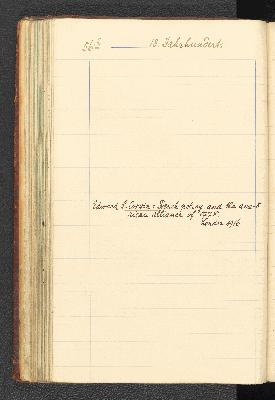 18. Jahrhundert.
Edward S. Corwin: French policy and the ame-
rican Alliance of 1778.
London 1916